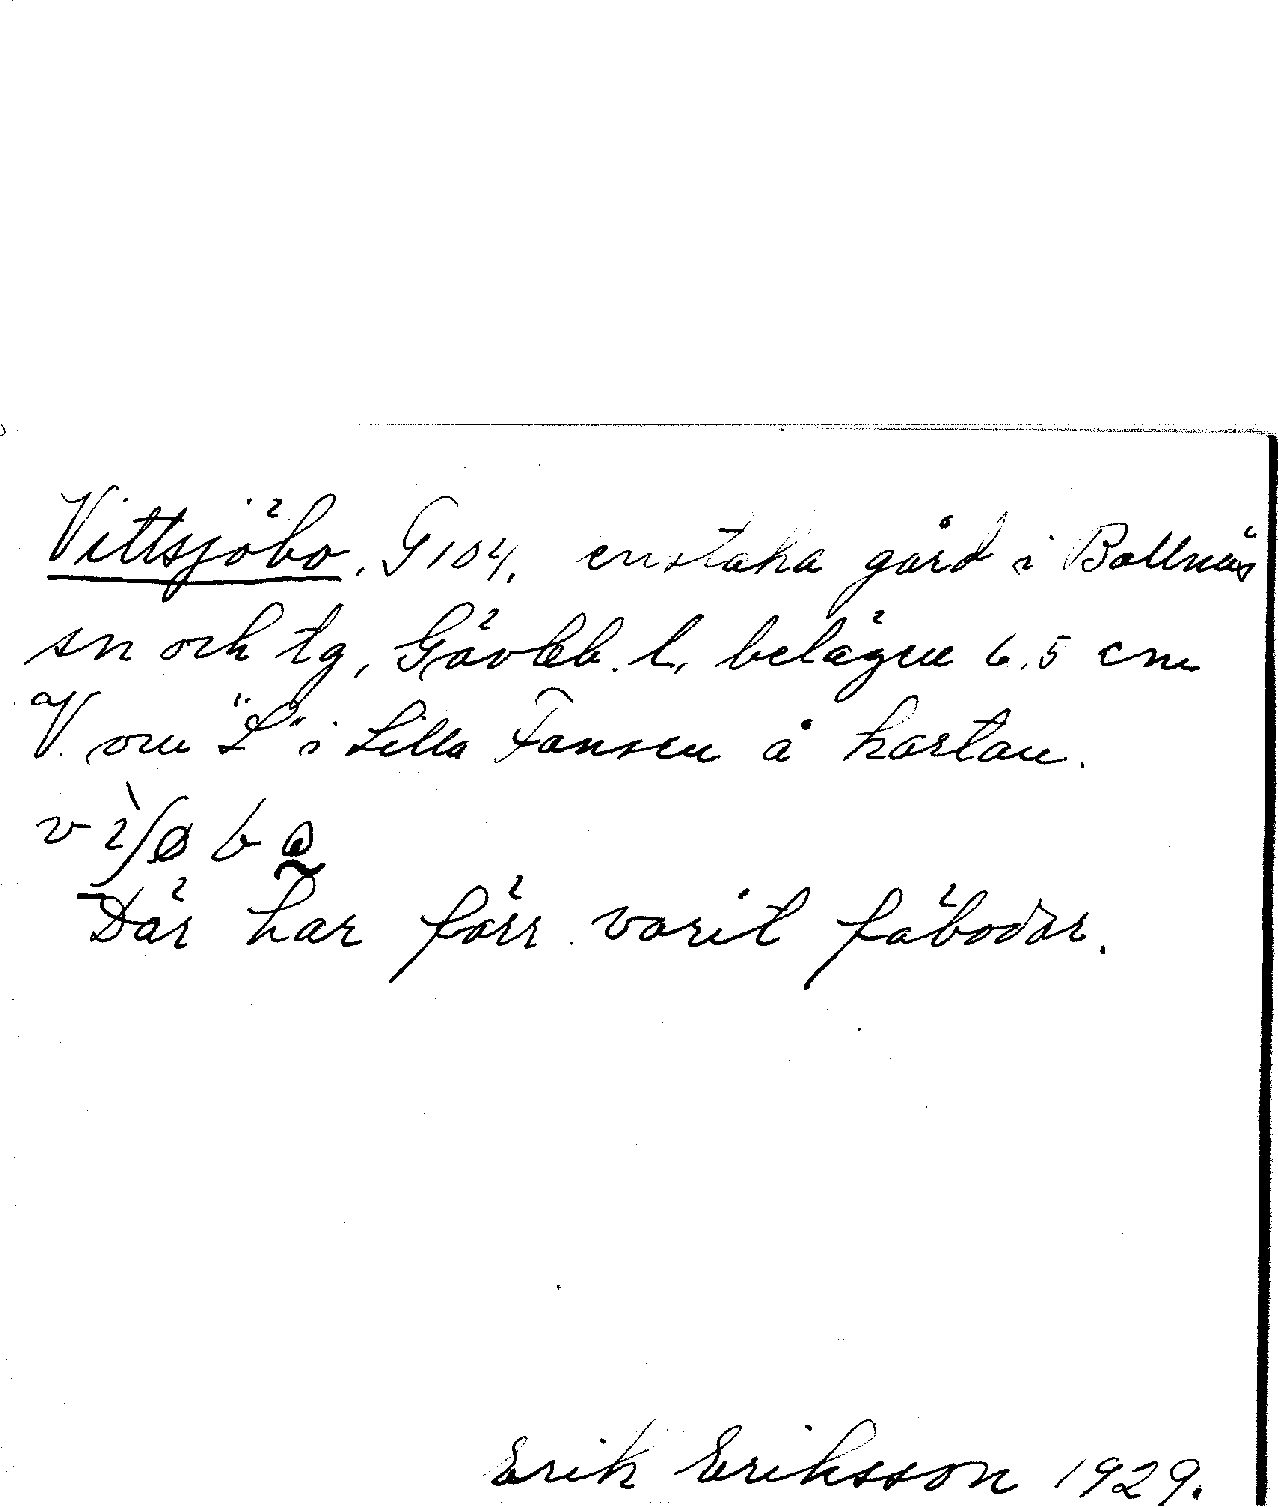 Vittsjöbo, G 104, enstaka gård i Bollnäs
sn och tg, Gävleb. l. belägen 6,5 cm
V. om "L" i Lilla Fansen å kartan.
Där har förr varit fäbodar.
Erik Eriksson 1929.